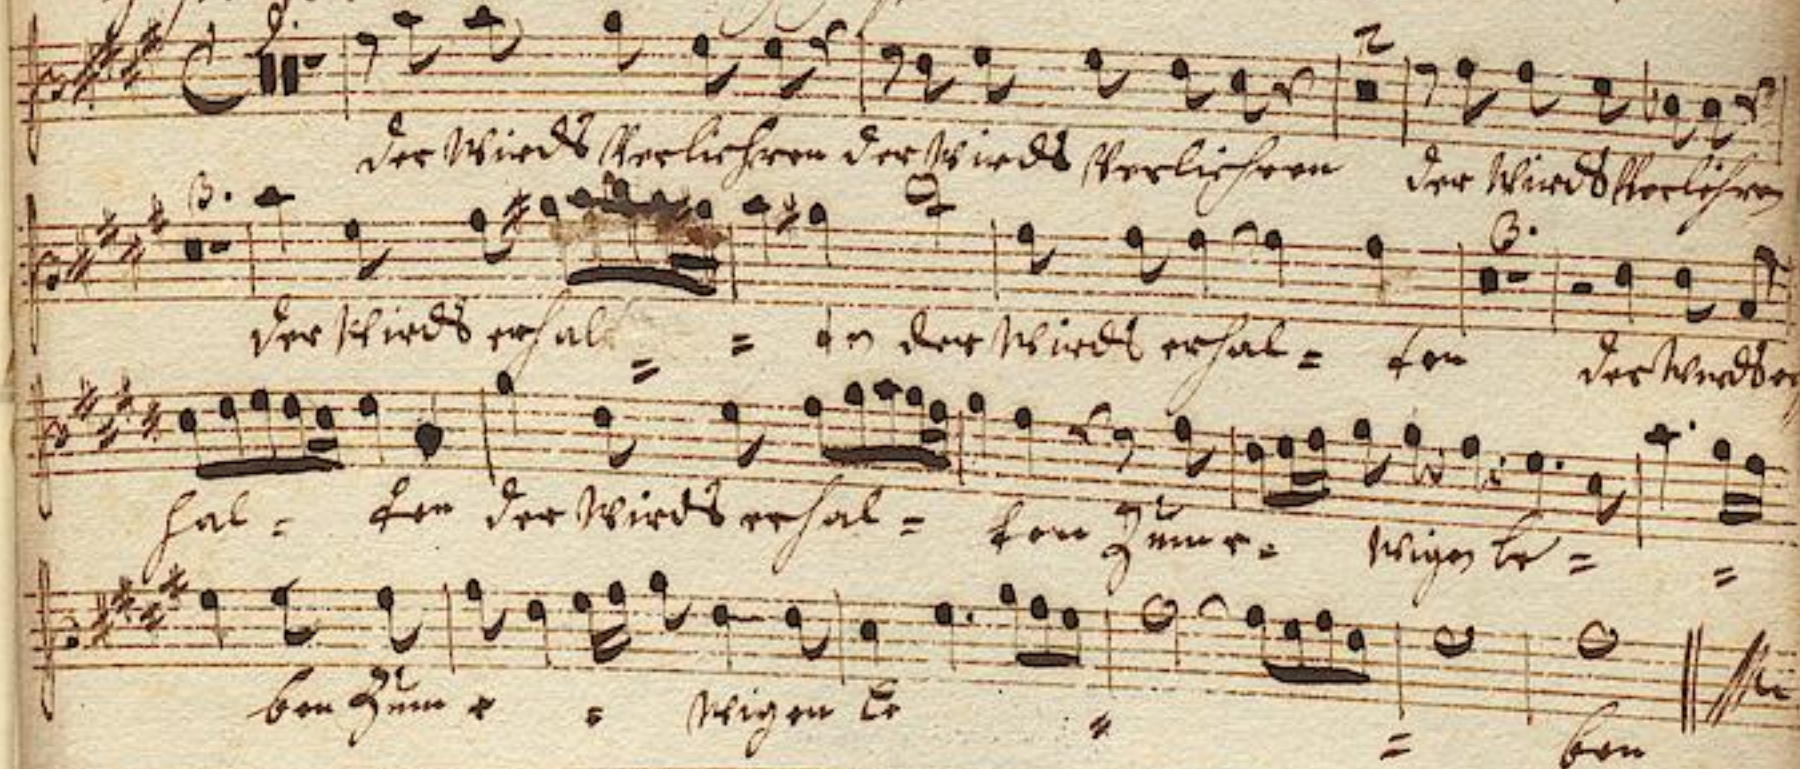 9.
der wirds Verliehren der wirds Verliehren der wirds Verliehren
2
3.
der wirds erhal = = ten der wirds erhal = ten der wirds er
3.
hal = ten der wirds erhal = ten Zum e = wigen le = =
ben Zum e = wigen le = = ben